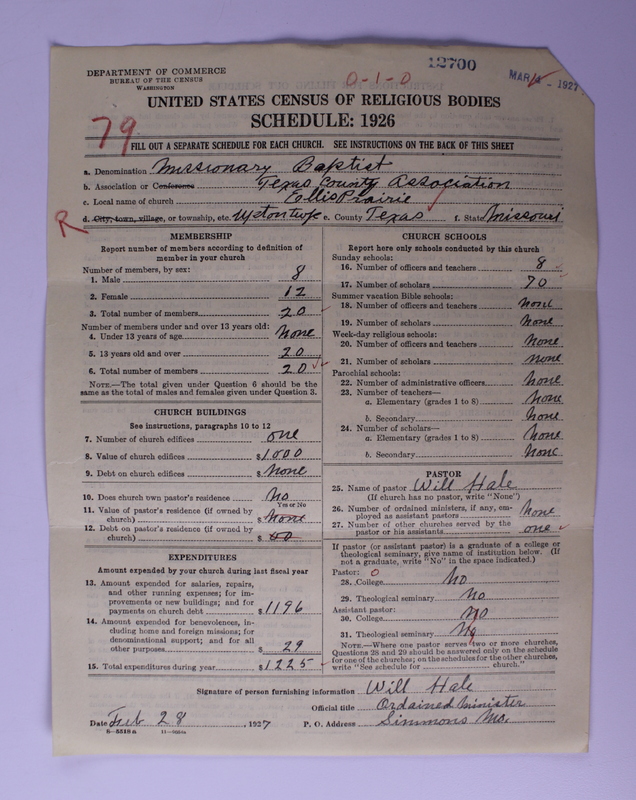 12700
DEPARTMENT OF COMMERCE
BUREAU OF THE CENSUS
WASHINGTON
0-1-0
MAR - 1927
UNITED STATES CENSUS OF RELIGIOUS BODIES
SCHEDULE: 1926
79
FILL OUT A SEPARATE SCHEDULE FOR EACH CHURCH. SEE INSTRUCTIONS ON THE BACK OF THIS SHEET
a. Denomination Missionary Baptist
b. Association or Conference Texas County Association
c. Local name of church Prairie
R
d. City, town, village, or township, etc. Upton twp e. County Texas f. State Missouri
MEMBERSHIP
Report number of members according to definition of
member in your church
Number of members, by sex:
1. Male 8
2. Female 12
3. Total number of members 20
Number of members under and over 13 years old:
4. Under 13 years of age None
5. 13 years old and over 20
6. Total number of members 20
NOTE.—The total given under Question 6 should be the
same as the total of males and females given under Question 3.
CHURCH BUILDINGS
See instructions, paragraphs 10 to 12
7. Number of church edifices one
8. Value of church edifices $1000
9. Debt on church edifices $ None
10. Does church own pastor's residence No
Yes or No
11. Value of pastor's residence (if owned by
church) $ None
12. Debt on pastor's residence (if owned by
church) $
EXPENDITURES
Amount expended by your church during last fiscal year
13. Amount expended for salaries, repairs,
and other running expenses; for im-
provements or new buildings; and for
payments on church debt $1196
14. Amount expended for benevolences, in-
cluding home and foreign missions; for
denominational support; and for all
other purposes $ 29
15. Total expenditures during year $1225
CHURCH SCHOOLS
Report here only schools conducted by this church
Sunday schools:
16. Number of officers and teachers 8
17. Number of scholars 70
Summer vacation Bible schools:
18. Number of officers and teachers None
19. Number of scholars None
Week-day religious schools:
20. Number of officers and teachers None
21. Number of scholars None
Parochial schools:
22. Number of administrative officers None
23. Number of teachers—
a. Elementary (grades 1 to 8) None
b. Secondary None
24. Number of scholars—
a. Elementary (grades 1 to 8) None
b. Secondary None
PASTOR
25. Name of pastor Will Hale
(If church has no pastor, write "None")
26. Number of ordained ministers, if any, em-
ployed as assistant pastors None
27. Number of other churches served by the
pastor or his assistants one
If pastor (or assistant pastor) is a graduate of a college or
theological seminary, give name of institution below. (If
not a graduate, write "No" in the space indicated.)
Pastor: 0
28. College No
29. Theological seminary No
Assistant pastor:
30. College No
31. Theological seminary No
NOTE.—Where one pastor serves two or more churches,
Questions 28 and 29 should be answered only on the schedule
for one of the churches; on the schedules for the other churches,
write "See schedule for church."
Signature of person furnishing information Will Hale
Official title Ordained Minister
Date Feb 28, 1927 P. O. Address Simmons Mo.